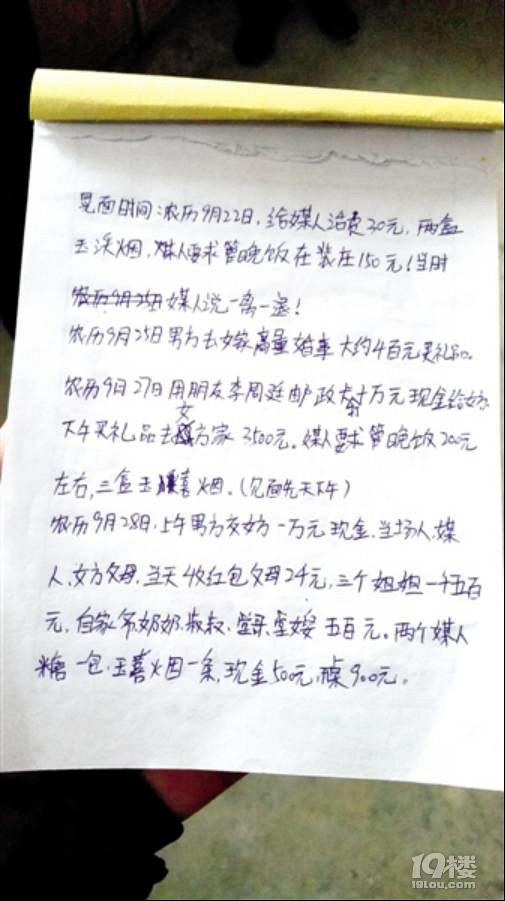 见面时间:农历9月22日,给媒人治费30元,两盒
玉溪烟,媒人要求管晚饭在装在150元!当时
农历9月25日媒人说一离一送!
农历9月25日男方去女家商量婚事大约4百元买礼品。
农历9月27日用朋友李周廷邮政卡打万元现金给女方
下午买礼品去女方家3500元。媒人要求管晚饭200元
左右,三盒玉喜烟。(见面先天下午)
农历9月28日,上午男方交女方一万元现金,当场人,媒
人,女方父母,当天收红包父母2千元,三个姐姐一千五百
元,自家爷奶奶,叔叔,堂哥,堂嫂五百元。两个媒人
糖一包,玉喜烟一条,现金500元,桌900元。
19楼
19lou.com